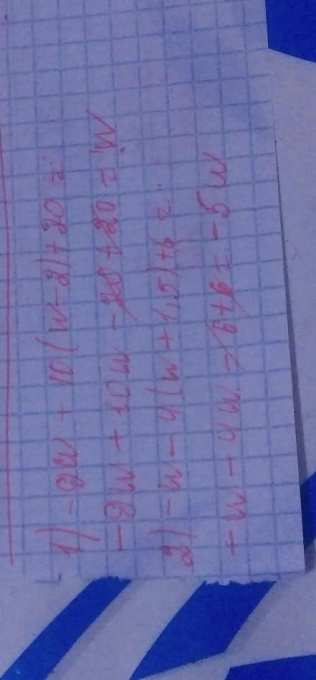 1) -9w + 10(w-2)+20 =
-9w + 10w - 20 + 20 = w
2) -w - 4(w + 1,5)+6 =
-w - 4w - 6+6 = -5w